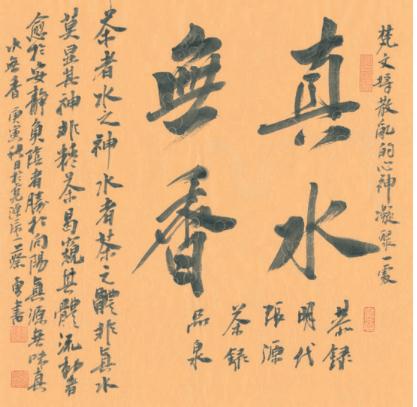 梵文將散亂的心神凝聚一處
真水
無香
茶錄
明代
張源
茶錄
品泉
茶者水之神水者茶之體非真水
莫显其神非精茶曷窺其體流動者
愈於安靜負陰者勝於向陽真源無味真
水無香 庚寅秋日於 書